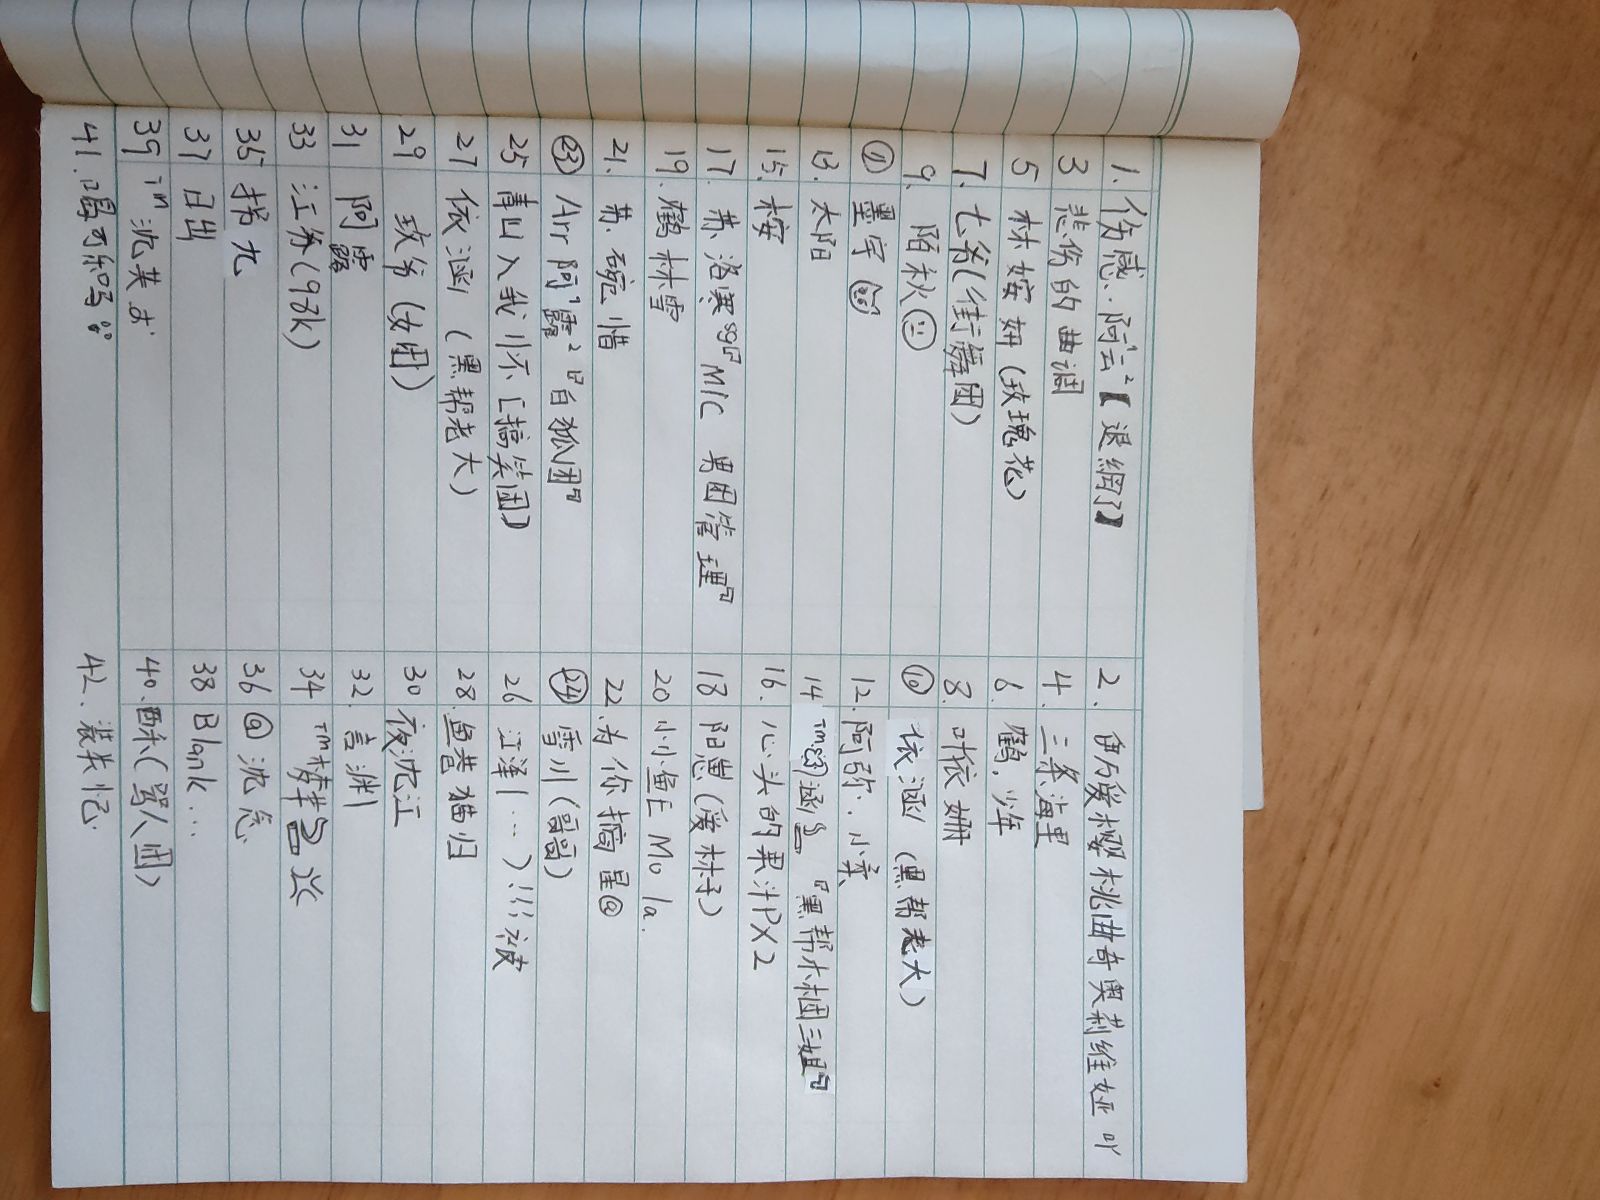 1. 伤感..阿云【退網了】
2. 伊乃爱樱桃曲奇奥莉维娅吖
3 悲伤的曲调
4. 三条海里
5 林婼妍(玫瑰花)
6. 鹤.少年
7. 七爷(街舞团)
8. 叶依姗
9. 陌秋
⑩ 依涵(黑帮老大)
⑪ 墨宇
12. 阿弥.小柒
13. 太阳
14 涵『黑帮木棝三姐』
15. 桉
16. 心头的果汁PX2
17. 苏洛寒『MIC 男团管理』
18 阳崽(爱林子)
19. 鹤林雪
20 小小鱼E Mo la.
21. 苏.碗惜
22. 为你摘星@
㉓ Arr阿露『白狐团』
㉔ 雪川(哥哥)
25 青山入我怀[搞笑团]
26 江泽
27 依涵(黑帮老大)
28. 鱼巷猫归
29 玫爷(女团)
30 夜沈江
31 阿露
32. 言渊
33 江爷(98k)
34 ™
35 拐九
36 @沈念
37 日出
38 Blank...
39 ™沈芙
40. (骂人团)
41. 喝可乐吗
42.